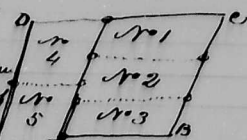 D C
No 1
No 4
No 2
No 5
No 3
B